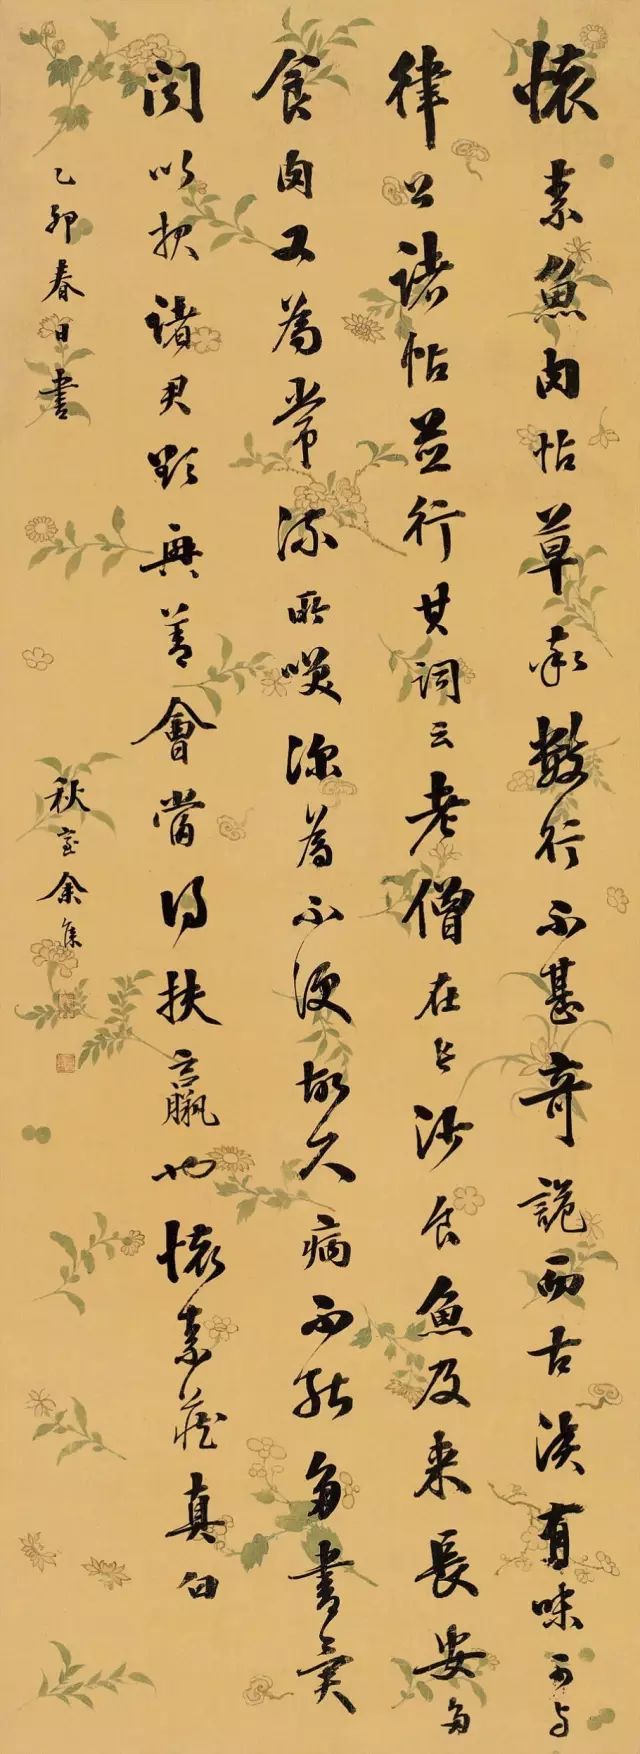 懷素魚肉帖草數行不甚奇詭而古淡有味可与
律公諸帖並行其詞云老僧在長沙食魚及來長安多
食肉又為常流所咲深為不便故久病不能多書異
以报諸君欲興善會當得扶羸也懷素藏真白
乙卯春日書
秋室余集